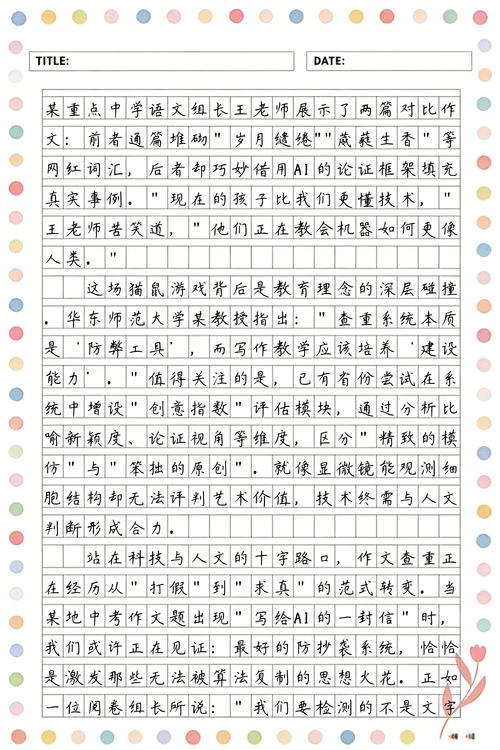 TITLE:
DATE:
某重点中学语文组长王老师展示了两篇对比作
文：前者通篇堆砌"岁月缱绻""葳蕤生香"等
网红词汇，后者却巧妙借用AI的论证框架填充
真实事例。"现在的孩子比我们更懂技术，"
王老师苦笑道，"他们正在教会机器如何更像
人类。"
这场猫鼠游戏背后是教育理念的深层碰撞
。华东师范大学某教授指出："查重系统本质
是'防弊工具'，而写作教学应该培养'建设
能力'。"值得关注的是，已有省份尝试在系
统中增设"创意指数"评估模块，通过分析比
喻新颖度、论证视角等维度，区分"精致的模
仿"与"笨拙的原创"。就像显微镜能观测细
胞结构却无法评判艺术价值，技术终需与人文
判断形成合力。
站在科技与人文的十字路口，作文查重正
在经历从"打假"到"求真"的范式转变。当
某地中考作文题出现"写给AI的一封信"时，
我们或许正在见证：最好的防抄袭系统，恰恰
是激发那些无法被算法复制的思想火花。正如
一位阅卷组长所说："我们要检测的不是文字